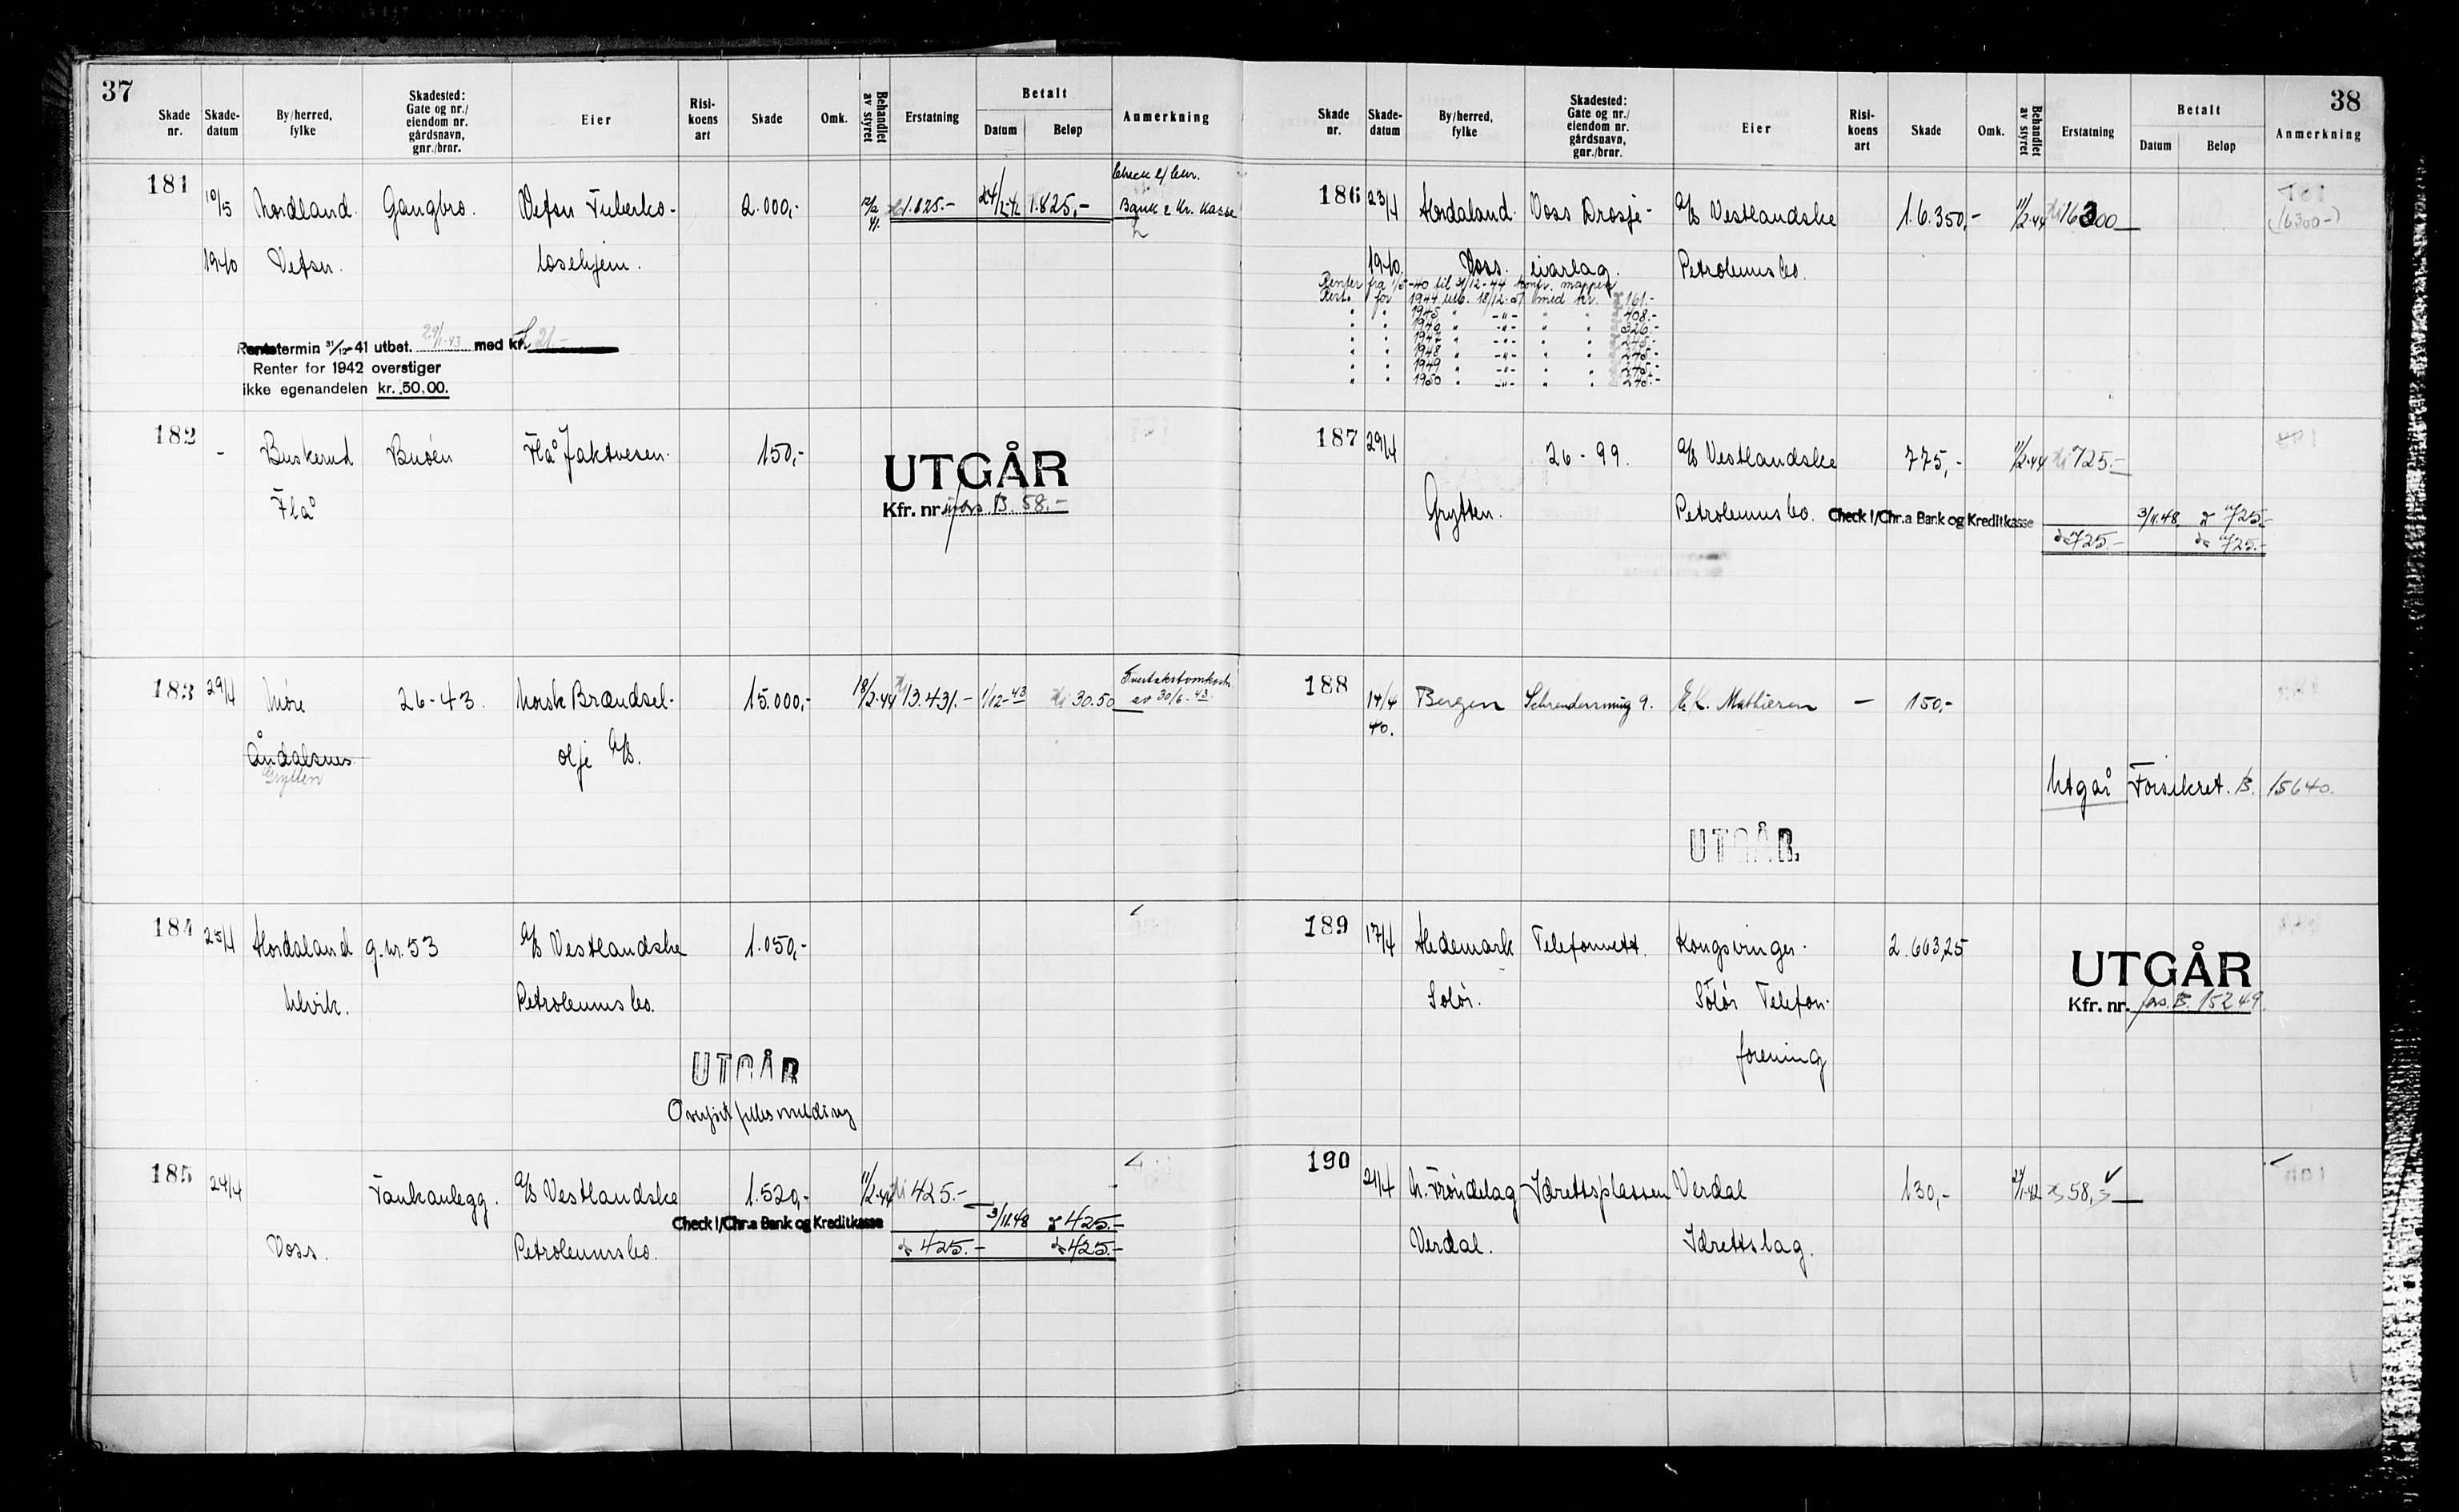 37
Skade nr. Skade-datum By/herred, fylke Skadested: Gate og nr./ eiendom nr. gårdsnavn, gnr./brnr. Eier Risi-koens art Skade Omk. Behandlet av styret Erstatning Betalt Datum Beløp Anmerkning
181 10/5 Nordland. Gangbro. Vefsn Tuberko- 2.000,- 1.825.- 1.825,- Bank & Kr. Kasse
1940 Vefsn. losehjem.
Rentetermin 31/12-41 utbet. 29/1-43 med kr. 21.-
Renter for 1942 overstiger
ikke egenandelen kr. 50,00.
182 - Buskerud Buøen Flå Jaktvesen. 150,-
Flå
UTGÅR
Kfr. nr. B. 58.-
183 29/4 Møre 26-43. Norsk Brændsel- 15.000,- 18/2-44 13.431.- 1/12-43 30.50 av 30/6-43.
Åndalsnes olje A/S.
Grytten
184 25/4 Hordaland g.nr. 53 A/S Vestlandske 1.050,-
Ulvik. Petroleums Co.
UTGÅR
Overført fellesmelding
185 24/4 Tankanlegg. A/S Vestlandske 1.520,- 11/2-44 425.-
Check I/Chr.a Bank og Kreditkasse 3/11.48 425.-
Voss. Petroleums Co. 425.- 425.-
38
Skade nr. Skade-datum By/herred, fylke Skadested: Gate og nr./ eiendom nr. gårdsnavn, gnr./brnr. Eier Risi-koens art Skade Omk. Behandlet av styret Erstatning Betalt Datum Beløp Anmerkning
186 23/4 Hordaland. Voss Drosje- A/S Vestlandske 16.350,- 11/2-44 16300 (16300-)
1940. Voss. eierlag. Petroleums Co.
Renter fra 1/5-40 til 31/12-44 konf. mappen
Rest. for 1944 utb. 18/12-51 med kr. 161.-
" " 1945 " -"- " " 408.-
" " 1946 " -"- " " 326.-
" " 1947 " -"- " " 245.-
" " 1948 " -"- " " 245.-
" " 1949 " -"- " " 245.-
" " 1950 " -"- " " 245.-
187 29/4 26-99. A/S Vestlandske 775,- 11/2-44 725.-
Grytten. Petroleums Co. Check I/Chr.a Bank og Kreditkasse 3/11.48 725.-
725.- 725.-
188 14/4 40. Bergen 9. E.K. Mathiesen - 150,-
Utgår Forsikret. B. 15640.
UTGÅR.
189 17/4 Hedemark Telefonnett. Kongsvinger- 2.663,25
Solør. Solør Telefon-
forening
UTGÅR
Kfr. nr. B. 15249.
190 21/4 N. Trøndelag Idrettsplassen Verdal 130,- 58,-
Verdal. Idrettslag.